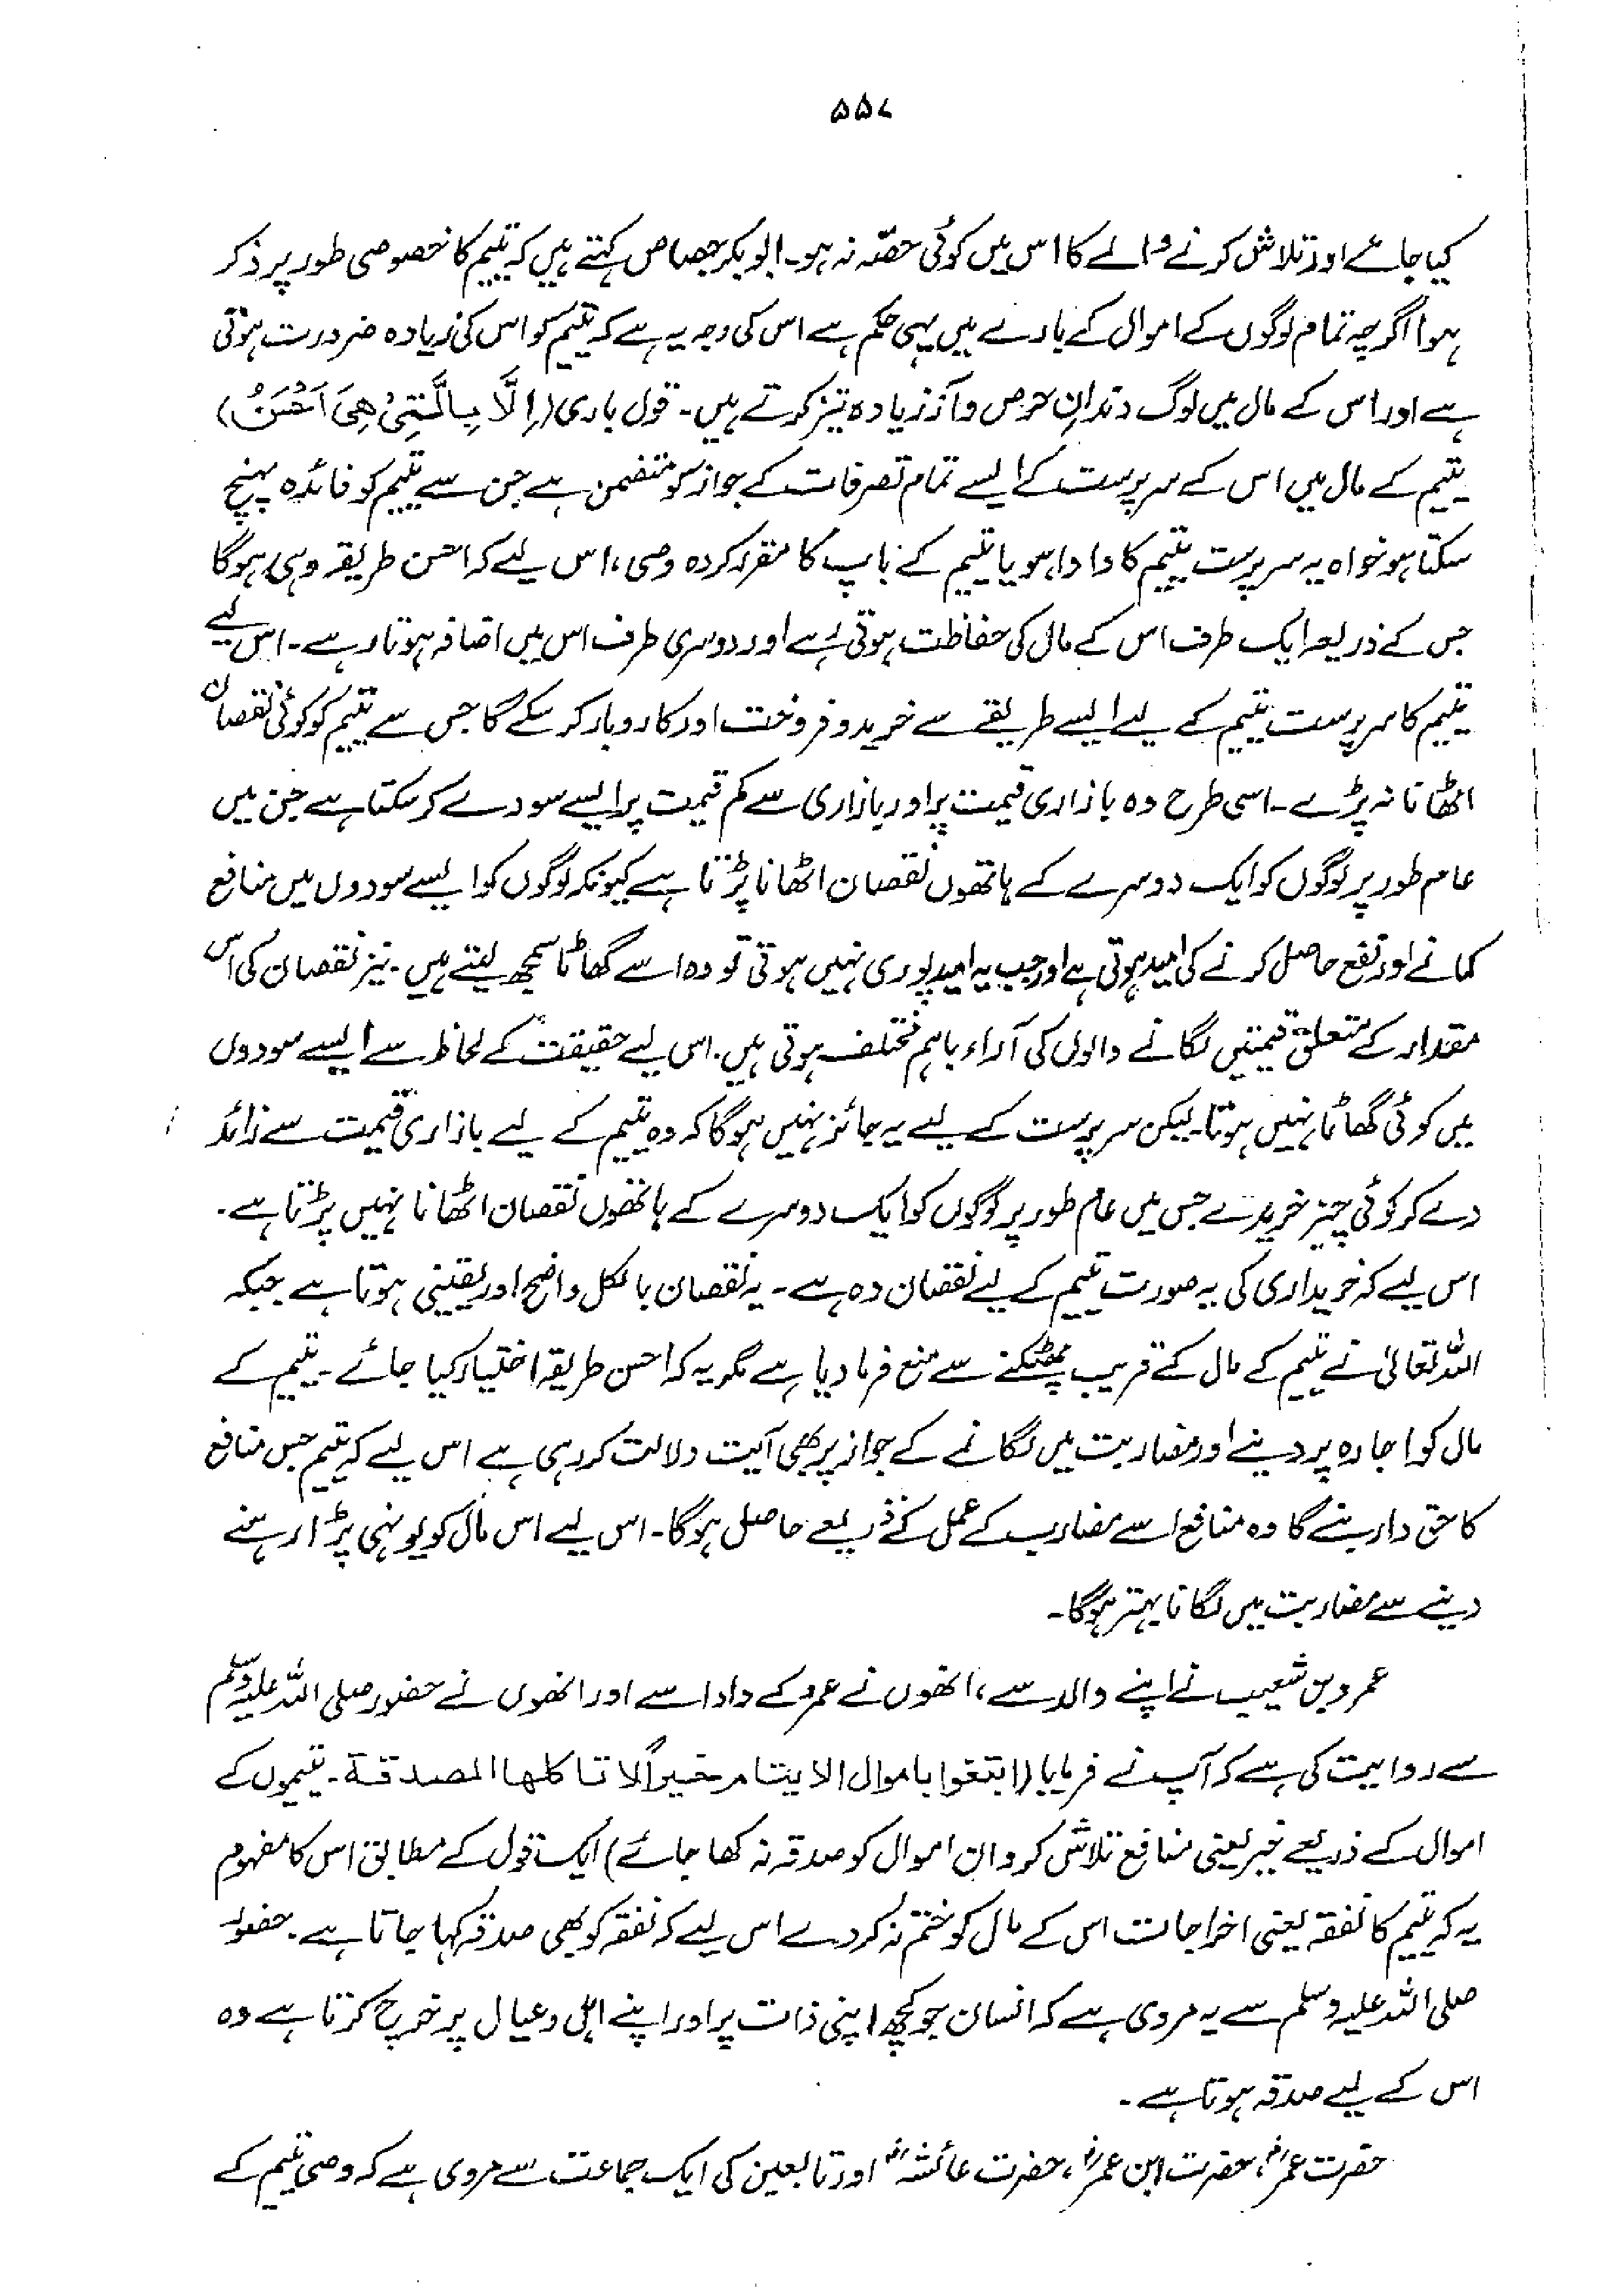 ۵۵۷
کیا جائے اور تلاش کرنے والے کا اس میں کوئی حصّہ نہ ہو۔ ابوبکر جصاص کہتے ہیں کہ یتیم کا خصوصی طور پر ذکر
ہوا اگرچہ تمام لوگوں کے اموال کے بارے میں یہی حکم ہے اس کی وجہ یہ ہے کہ یتیم کو اس کی زیادہ ضرورت ہوتی
ہے اور اس کے مال میں لوگ دندانِ حرص و آز زیادہ تیز کرتے ہیں۔ قول باری (اِلَّا بِالَّتِیْ هِیَ اَحْسَنُ)
یتیم کے مال میں اس کے سرپرست کے ایسے تمام تصرفات کے جواز کو متضمن ہے جن سے یتیم کو فائدہ پہنچ
سکتا ہو خواہ یہ سرپرست یتیم کا دادا ہو یا یتیم کے باپ کا مقرر کردہ وصی، اس لیے کہ احسن طریقہ وہی ہوگا
جس کے ذریعہ ایک طرف اس کے مال کی حفاظت ہوتی ہے اور دوسری طرف اس میں اضافہ ہوتا رہے۔ اس لیے
یتیم کا سرپرست یتیم کے لیے ایسے طریقے سے خرید و فروخت اور کاروبار کر سکے گا جس سے یتیم کو کوئی نقصان
اٹھانا نہ پڑے۔ اسی طرح وہ بازاری قیمت پر اور بازاری سے کم قیمت پر ایسے سودے کر سکتا ہے جن میں
عام طور پر لوگوں کو ایک دوسرے کے ہاتھوں نقصان اٹھانا پڑتا ہے کیونکہ لوگوں کو ایسے سودوں میں منافع
کمانے اور نفع حاصل کرنے کی امید ہوتی ہے اور جب یہ امید پوری نہیں ہوتی تو وہ اسے گھاٹا سمجھ لیتے ہیں۔ نیز نقصان کی اس
مقدار کے متعلق قیمتیں لگانے والوں کی آراء باہم مختلف ہوتی ہیں۔ اس لیے حقیقت کے لحاظ سے ایسے سودوں
میں کوئی گھاٹا نہیں ہوتا۔ لیکن سرپرست کے لیے یہ جائز نہیں ہوگا کہ وہ یتیم کے لیے بازاری قیمت سے زائد
دے کر کوئی چیز خریدے جس میں عام طور پر لوگوں کو ایک دوسرے کے ہاتھوں نقصان اٹھانا نہیں پڑتا ہے۔
اس لیے کہ خریداری کی یہ صورت یتیم کے لیے نقصان دہ ہے۔ یہ نقصان بالکل واضح اور یقینی ہوتا ہے جبکہ
اللہ تعالیٰ نے یتیم کے مال کے قریب پھٹکنے سے منع فرما دیا ہے مگر یہ کہ احسن طریقہ اختیار کیا جائے۔ یتیم کے
مال کو اجارہ پر دینے اور مضاربت میں لگانے کے جواز پر بھی آیت دلالت کر رہی ہے اس لیے کہ یتیم جس منافع
کا حق دار بنے گا وہ منافع اسے مضارب کے عمل کے ذریعے حاصل ہوگا۔ اس لیے اس مال کو یونہی پڑا رہنے
دینے سے مضاربت میں لگانا بہتر ہوگا۔
عمرو بن شعیب نے اپنے والد سے، انھوں نے عمرو کے دادا سے اور انھوں نے حضور صلی اللہ علیہ وسلم
سے روایت کی ہے کہ آپ نے فرمایا (ابتغوا باموال الایتام خیراً لا تاکلها الصدقة۔ یتیموں کے
اموال کے ذریعے خیر یعنی منافع تلاش کرو ان اموال کو صدقہ نہ کھا جائے) ایک قول کے مطابق اس کا مفہوم
یہ کہ یتیم کا نفقہ یعنی اخراجات اس کے مال کو ختم نہ کر دے اس لیے کہ نفقہ کو بھی صدقہ کہا جاتا ہے۔ حضور
صلی اللہ علیہ وسلم سے یہ مروی ہے کہ انسان جو کچھ اپنی ذات پر اور اپنے اہل و عیال پر خرچ کرتا ہے وہ
اس کے لیے صدقہ ہوتا ہے۔
حضرت عمرؓ، حضرت ابن عمرؓ، حضرت عائشہؓ اور تابعین کی ایک جماعت سے مروی ہے کہ وصی یتیم کے